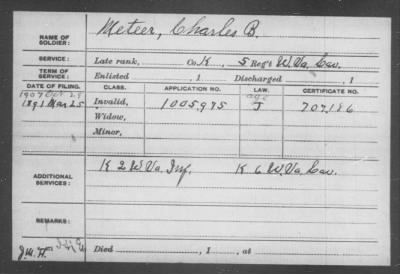 NAME OF SOLDIER: Meteer, Charles B.
SERVICE: Late rank, Co. K, 5 Reg't W. Va. Cav.
TERM OF SERVICE: Enlisted , 1 Discharged , 1
DATE OF FILING. CLASS. APPLICATION NO. LAW. CERTIFICATE NO.
1907 Oct. age
1891 Mar 25 Invalid, 1005,975 J 707,186
Widow,
Minor,
ADDITIONAL SERVICES: K 2 W. Va. Inf. K 6 W. Va. Cav.
REMARKS:
J.M.H. Died , 1 , at